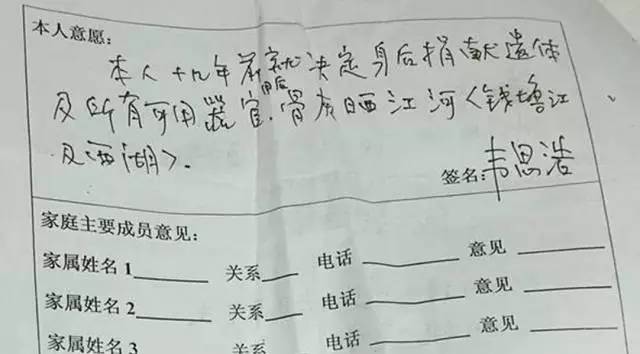 本人意愿:
本人十九年前就决定身后捐献遗体
及所有可用器官,用后骨灰晒江河<钱塘江
及西湖>.
签名:韦思浩
家庭主要成员意见:
家属姓名1 关系 电话 意见
家属姓名2 关系 电话 意见
家属姓名3 关系 电话 意见